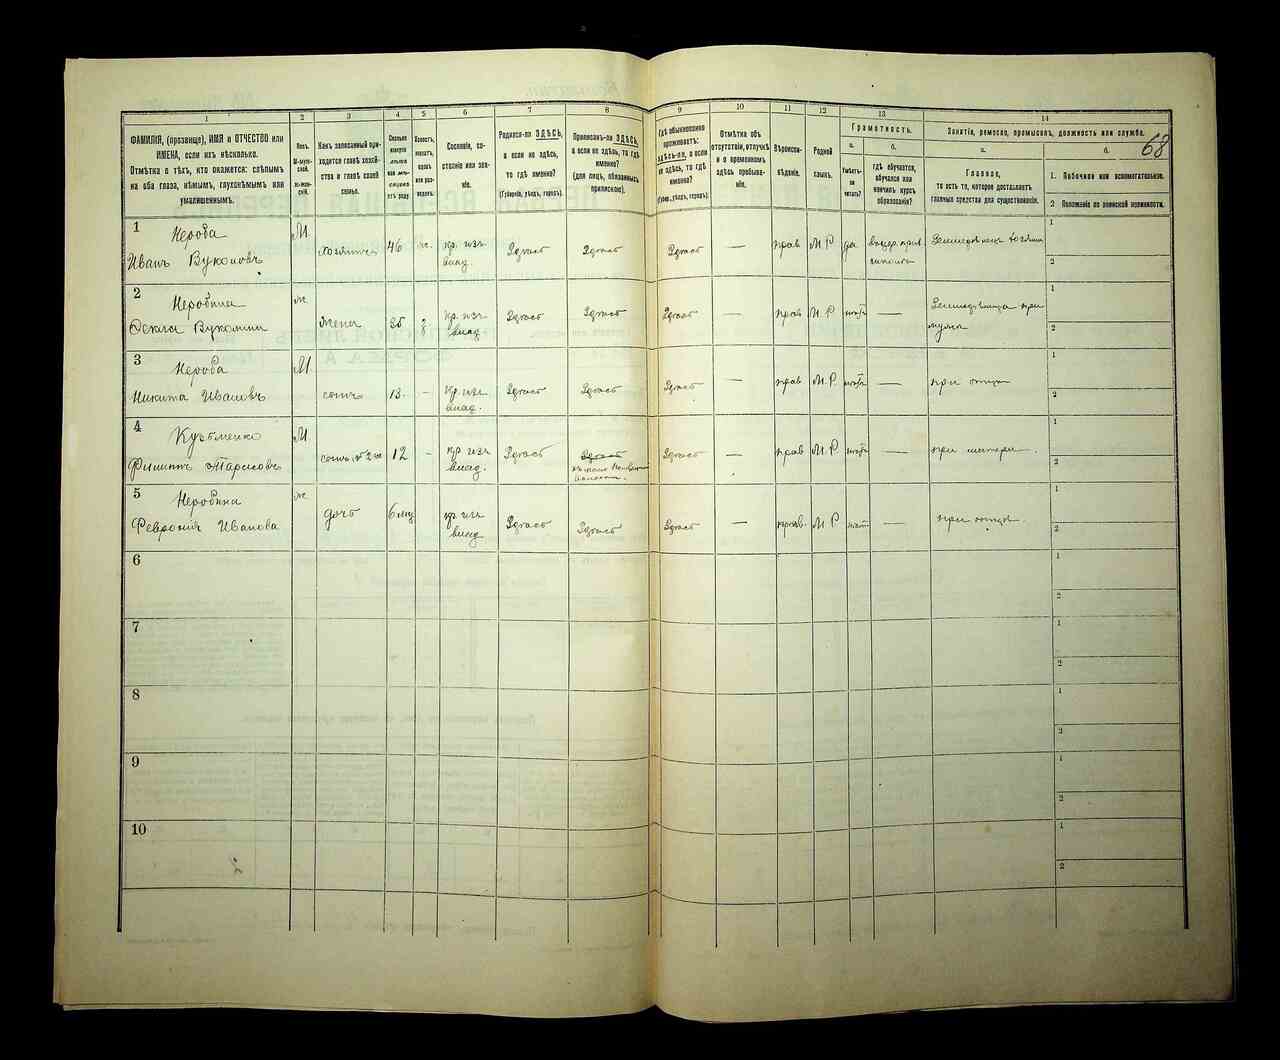 1 2 3 4 5 6 7 8 9 10 11 12 13 14
68
ФАМИЛІЯ, (прозвище), ИМЯ и ОТЧЕСТВО или
ИМЕНА, если ихъ нѣсколько.
Отмѣтка о тѣхъ, кто окажется: слѣпымъ
на оба глаза, нѣмымъ, глухонѣмымъ или
умалишеннымъ.
Полъ.
М-муж-
ской.
Ж-жен-
скій.
Какъ записанный при-
ходится главѣ хозяй-
ства и главѣ своей
семьи.
Сколько
минуло
лѣтъ
или мѣ-
сяцевъ
отъ роду.
Холостъ,
женатъ,
вдовъ
или раз-
веденъ.
Сословіе, со-
стояніе или зва-
ніе.
Родился-ли ЗДѢСЬ,
а если не здѣсь,
то гдѣ именно?
(Губернія, уѣздъ, городъ).
Приписанъ-ли ЗДѢСЬ,
а если не здѣсь, то гдѣ
именно?
(для лицъ, обязанныхъ
припискою).
Гдѣ обыкновенно
проживаетъ:
здѣсь-ли, а если
не здѣсь, то гдѣ
именно?
(Губерн., уѣздъ, городъ).
Отмѣтка объ
отсутствіи, отлучкѣ
и о временномъ
здѣсь пребыва-
ніи.
Вѣроиспо-
вѣданіе.
Родной
языкъ.
Грамотность.
а.
Умѣетъ-
ли
читать?
б.
гдѣ обучается,
обучался или
кончилъ курсъ
образованія?
Занятія, ремесло, промыселъ, должность или служба.
а.
Главное,
то есть то, которое доставляетъ
главныя средства для существованія.
б.
1. Побочное или вспомогательное.
2 Положеніе по воинской повинности.
1 Нероба
Иванъ Вуколовъ
М хозяинъ 46 ж. кр. изъ
влад. Здѣсь Здѣсь Здѣсь — прав М.Р да
1
2
2 Неробина
Ѳекла
ж жена 36 кр. изъ
влад Здѣсь Здѣсь Здѣсь — прав М.Р нѣтъ — при
мужѣ
1
2
3 Нероба
Никита Ивановъ
М сынъ 13. - кр. изъ
влад. Здѣсь Здѣсь Здѣсь — прав М.Р нѣтъ — при отцѣ
1
2
4 Кузьменко
Филиппъ Тарасовъ
М сынъ 12 - кр изъ
влад. Здѣсь Здѣсь Здѣсь — прав М.Р нѣтъ — при матери.
волости.
1
2
5 Неробина
Февронія Иванова
ж дочь 6 мц кр. изъ
влад Здѣсь Здѣсь Здѣсь — прав. М.Р нѣтъ — при отцѣ
1
2
6
1
2
7
1
2
8
1
2
9
1
2
10
1
2